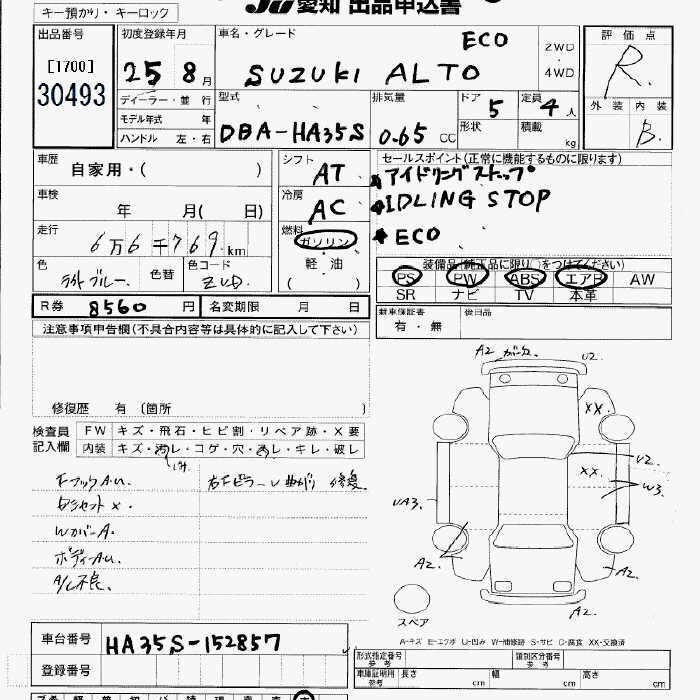 キー預かり・キーロック
愛知 出品申込書
出品番号
[1700]
30493
初度登録年月
25 8月
ディーラー・並行
モデル年式 年
ハンドル 左・右
車名・グレード
ECO
SUZUKI ALTO
2WD
4WD
型式
DBA-HA35S
排気量
0.65 CC
ドア
5
定員
4人
形状
積載
kg
評価点
R
外装 内装
B
車歴
自家用・( )
車検
年 月( 日)
走行
6万6千769km
色
ライトブルー
色替
色コード
ZUD
シフト
AT
冷房
AC
燃料
ガソリン
軽・油
( )
セールスポイント(正常に機能するものに限ります)
アイドリングストップ
IDLING STOP
ECO
装備品(純正品に限り○をつけてください)
PS PW ABS エアB AW
SR ナビ TV 本革
R券 8560円 名変期限 月 日
新車保証書
有・無
後日品
注意事項申告欄(不具合内容等は具体的に記入して下さい)
修復歴 有 [箇所 ]
検査員
記入欄
FW キズ・飛石・ヒビ割・リペア跡・X要
内装 キズ・汚レ・コゲ・穴・凹レ・キレ・破レ
右Fピラー 曲がり 修復
A/C不良
A2 U2
XX
U2
XX
W3
UA3
A2
A2
A2
スペア
A-キズ E-エクボ U-凹み W-補修跡 S-サビ C-腐食 XX-交換済
車台番号 HA35S-152857
登録番号
形式指定番号
参考
類別区分番号
参考
車庫証明用
参考
長さ cm 幅 cm 高さ cm